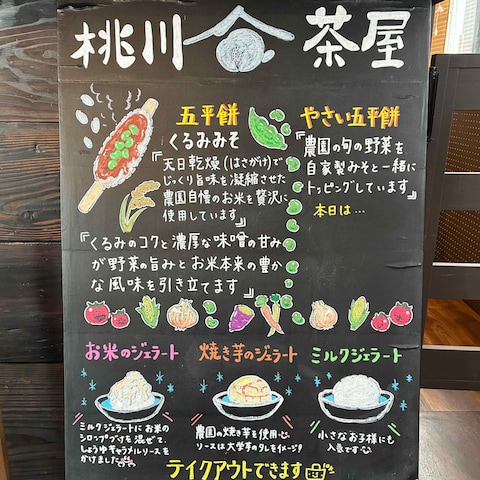 桃川 茶屋
五平餅
くるみみそ
『天日乾燥(はさがけ)で
じっくり旨味を凝縮させた
農園自慢のお米を贅沢に
使用しています』
『くるみのコクと濃厚な味噌の甘み
が野菜の旨みとお米本来の豊か
な風味を引き立てます』
やさい五平餅
『農園の旬の野菜を
自家製みそと一緒に
トッピングしています』
本日は…
お米のジェラート
ミルクジェラートにお米の
シロップづけを混ぜて、
しょうゆキャラメルソースを
かけました
焼き芋のジェラート
農園の焼き芋を使用
ソースは大学芋のタレをイメージ!
ミルクジェラート
小さなお子様にも
人気です
テイクアウトできます